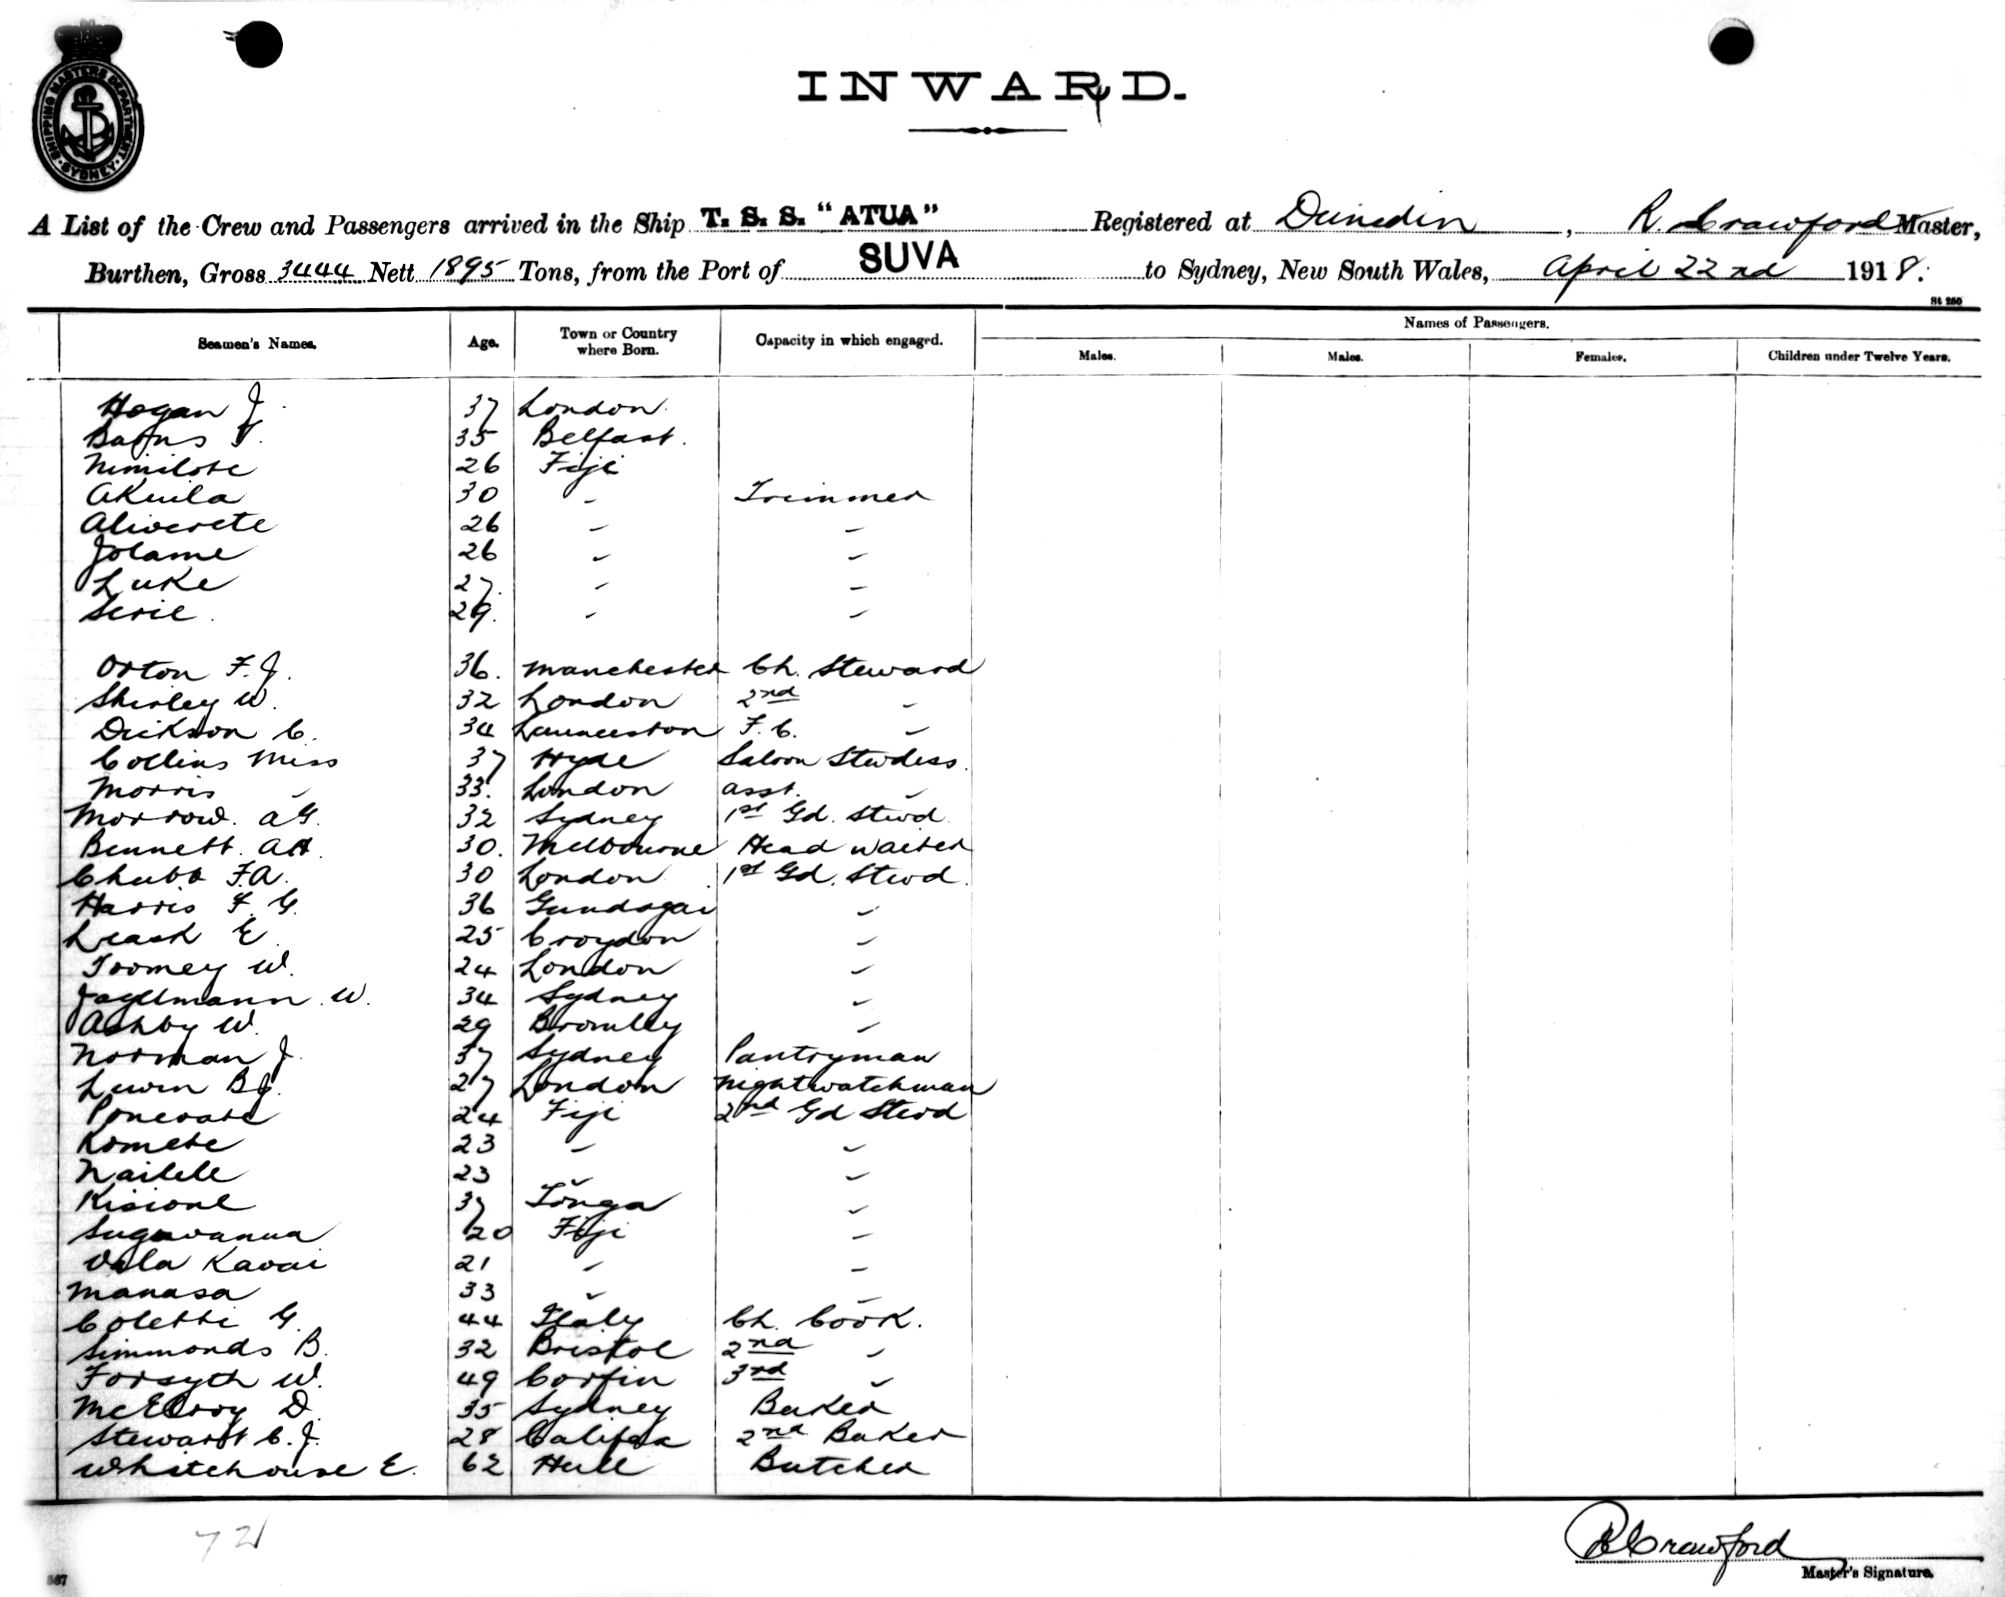 SHIPPING MASTERS DEPARTMENT SYDNEY
INWARD.
A List of the Crew and Passengers arrived in the Ship T. S. S. "ATUA" Registered at Dunedin, R. Crawford Master,
Burthen, Gross 3444 Nett 1895 Tons, from the Port of SUVA to Sydney, New South Wales, April 22nd 1918.
St 250
Seamen's Names. Age. Town or Country where Born. Capacity in which engaged. Names of Passengers.
Males. Males. Females. Children under Twelve Years.
Hogan J. 37 London.
35 Belfast.
Nimilote 26 Fiji
Akuila 30 " Trimmer
Aliverete 26 " "
Jolame 26 " "
Luke 27. " "
Serie. 29. " "
Orton F. J. 36. Manchester Ch. Steward
Shirley W. 32 London 2nd "
Dickson C. 34 Launceston F. C. "
Collins Miss 37 Hyde Saloon Stewdess.
Morris " 33. London asst. "
Morrow. A G. 32 Sydney 1st Gd. Stwd.
Bennett. A H. 30. Melbourne Head Waiter
Chubb F. A. 30 London 1st Gd. Stwd.
Harris F. G. 36 Gundagai "
Leask E. 25 Croydon "
Toomey W. 24 London "
W. 34 Sydney "
Ashby W. 29 Bromley "
Norman J. 37 Sydney Pantryman
Lewin B J. 27 London Nightwatchman
Ponerate 24 Fiji 2nd Gd Stwd
Komete 23 " "
Nailele 23 " "
Kisione 37 Tonga "
Sugavanua 20 Fiji "
Vala Kavai 21 " "
Manasa 33 " "
Coletti G. 44 Italy Ch. Cook.
Simmonds B. 32 Bristol 2nd "
Forsyth W. 49 3rd "
McElroy D. 35 Sydney Baker
Stewart C. J. 28 2nd Baker
Whitehouse E. 62 Hull Butcher
72
R Crawford
Master's Signature.
567